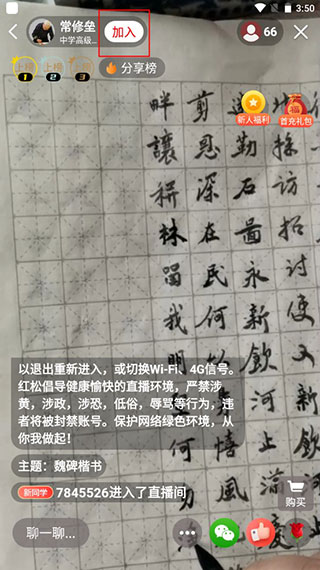 3:50
常修垒
中学高级...
加入
66
上榜 上榜 上榜
1 2 3
分享榜
新人福利
福
首充礼包
訪招討
勤石圖永新飲河
剪恩深在民何
畔讓耕林留我明
以退出重新进入，或切换Wi-Fi、4G信号。
红松倡导健康愉快的直播环境，严禁涉
黄，涉政，涉恐，低俗，辱骂等行为，违
者将被封禁账号。保护网络绿色环境，从
你我做起！
主题：魏碑楷书
新同学 7845526进入了直播间
购买
聊一聊...